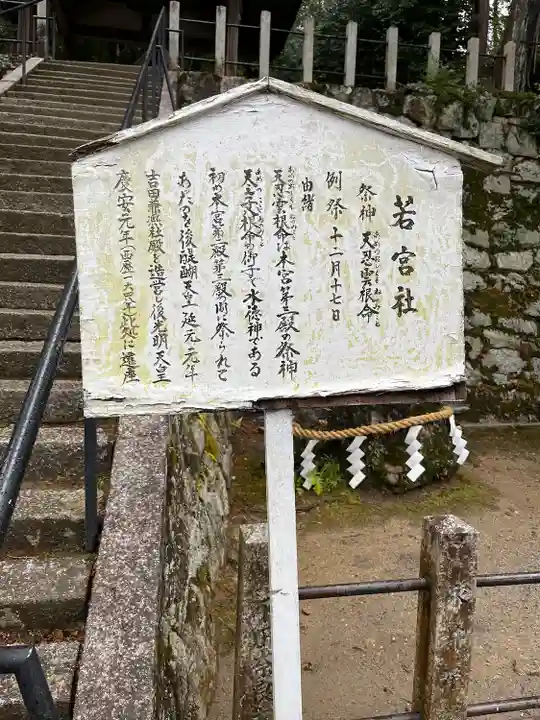 若宮社
祭神 天忍雲根命
例祭 十二月十七日
由緒
天忍雲根命は本宮第三殿の祭神
天之子八根命の御子で水徳神である
初め本宮第二殿第三殿間に祭られて
あったが後醍醐天皇延元元年
吉田兼熙社殿を造営し後光明天皇
慶安元年(西暦一六四八)現在地に遷座